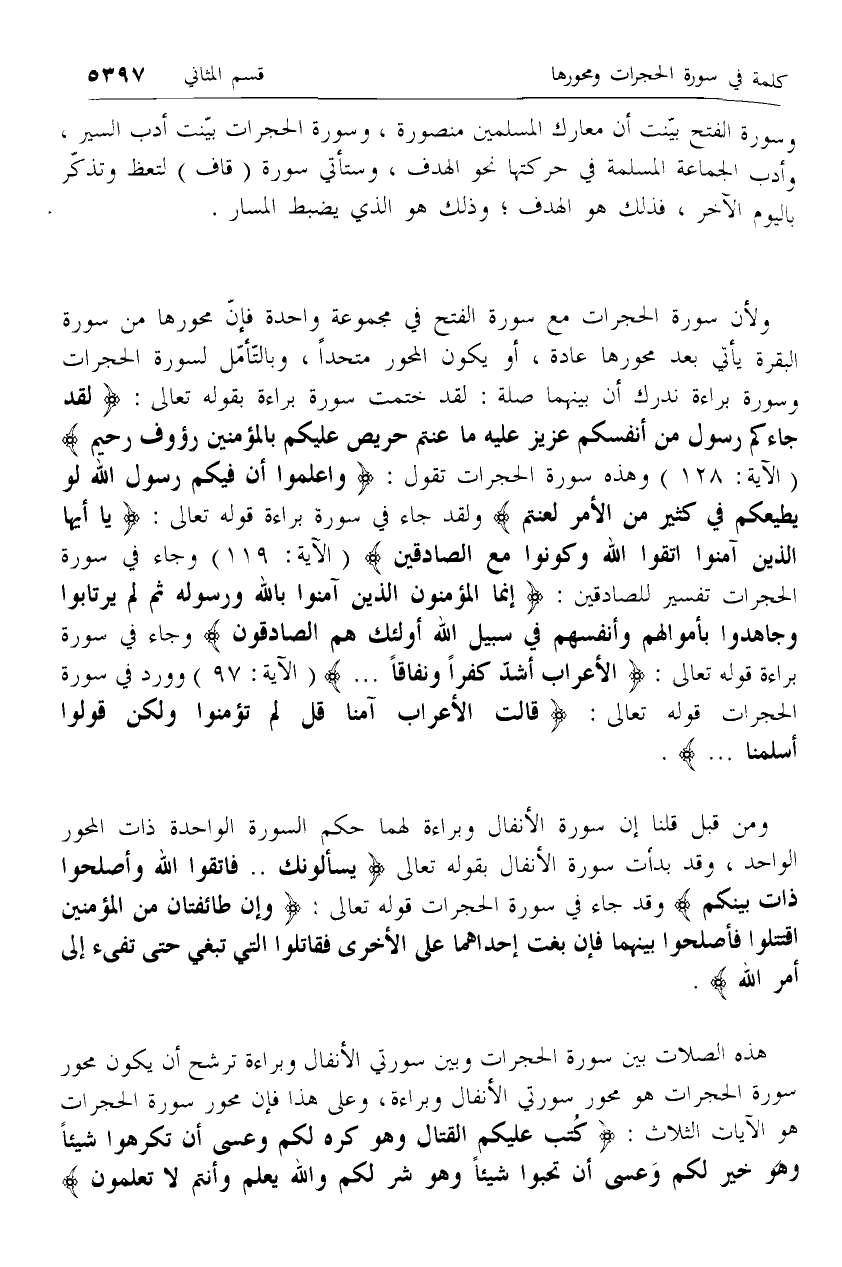 كلمة في سورة الحجرات ومحورها قسم المثاني ٥٣٩٧
وسورة الفتح بيّنت أن معارك المسلمين منصورة ، وسورة الحجرات بيّنت أدب السير ،
وأدب الجماعة المسلمة في حركتها نحو الهدف ، وستأتي سورة ( قاف ) لتعظ وتذكّر
باليوم الآخر ، فذلك هو الهدف ؛ وذلك هو الذي يضبط المسار .
ولأن سورة الحجرات مع سورة الفتح في مجموعة واحدة فإنّ محورها من سورة
البقرة يأتي بعد محورها عادة ، أو يكون المحور متحداً ، وبالتّأمّل لسورة الحجرات
وسورة براءة ندرك أن بينهما صلة : لقد ختمت سورة براءة بقوله تعالى : ﴿ لقد
جاءكم رسول من أنفسكم عزيز عليه ما عنتم حريص عليكم بالمؤمنين رؤوف رحيم ﴾
( الآية : ١٢٨ ) وهذه سورة الحجرات تقول : ﴿ واعلموا أن فيكم رسول الله لو
يطيعكم في كثير من الأمر لعنتم ﴾ ولقد جاء في سورة براءة قوله تعالى : ﴿ يا أيها
الذين آمنوا اتقوا الله وكونوا مع الصادقين ﴾ ( الآية : ١١٩ ) وجاء في سورة
الحجرات تفسير للصادقين : ﴿ إنما المؤمنون الذين آمنوا بالله ورسوله ثم لم يرتابوا
وجاهدوا بأموالهم وأنفسهم في سبيل الله أولئك هم الصادقون ﴾ وجاء في سورة
براءة قوله تعالى : ﴿ الأعراب أشدّ كفراً ونفاقاً ... ﴾ ( الآية : ٩٧ ) وورد في سورة
الحجرات قوله تعالى : ﴿ قالت الأعراب آمنا قل لم تؤمنوا ولكن قولوا
أسلمنا ... ﴾ .
ومن قبل قلنا إن سورة الأنفال وبراءة لهما حكم السورة الواحدة ذات المحور
الواحد ، وقد بدأت سورة الأنفال بقوله تعالى ﴿ يسألونك .. فاتقوا الله وأصلحوا
ذات بينكم ﴾ وقد جاء في سورة الحجرات قوله تعالى : ﴿ وإن طائفتان من المؤمنين
اقتتلوا فأصلحوا بينهما فإن بغت إحداهما على الأخرى فقاتلوا التي تبغي حتى تفىء إلى
أمر الله ﴾ .
هذه الصلات بين سورة الحجرات وبين سورتي الأنفال وبراءة ترشح أن يكون محور
سورة الحجرات هو محور سورتي الأنفال وبراءة ، وعلى هذا فإن محور سورة الحجرات
هو الآيات الثلاث : ﴿ كُتب عليكم القتال وهو كره لكم وعسى أن تكرهوا شيئاً
وهو خير لكم وَعسى أن تحبوا شيئاً وهو شر لكم والله يعلم وأنتم لا تعلمون ﴾